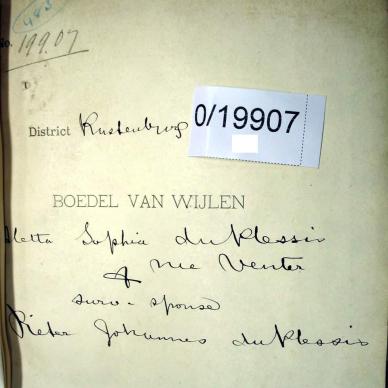 983
No. 19907
D
District Rustenburg
0/19907
BOEDEL VAN WIJLEN
Aletta Sophia du Plessis
& nee Venter
surv- spouse
Pieter Johannes du Plessis